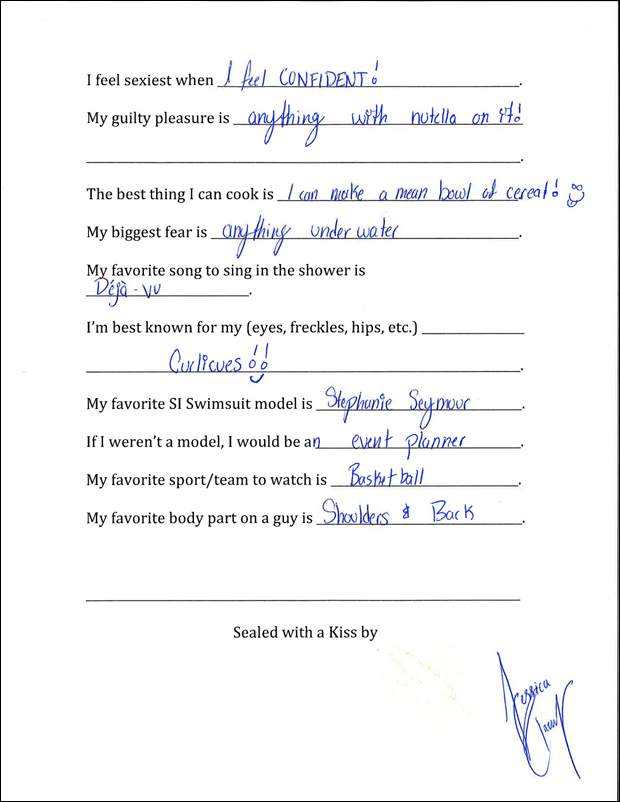 I feel sexiest when I feel CONFIDENT!.
My guilty pleasure is anything with nutella on it!
.
The best thing I can cook is I can make a mean bowl of cereal!
My biggest fear is anything under water.
My favorite song to sing in the shower is
Déjà-vu.
I'm best known for my (eyes, freckles, hips, etc.)
Curlicues!!.
My favorite SI Swimsuit model is Stephanie Seymour.
If I weren't a model, I would be an event planner.
My favorite sport/team to watch is Basketball.
My favorite body part on a guy is Shoulders & Back.
Sealed with a Kiss by
Jessica